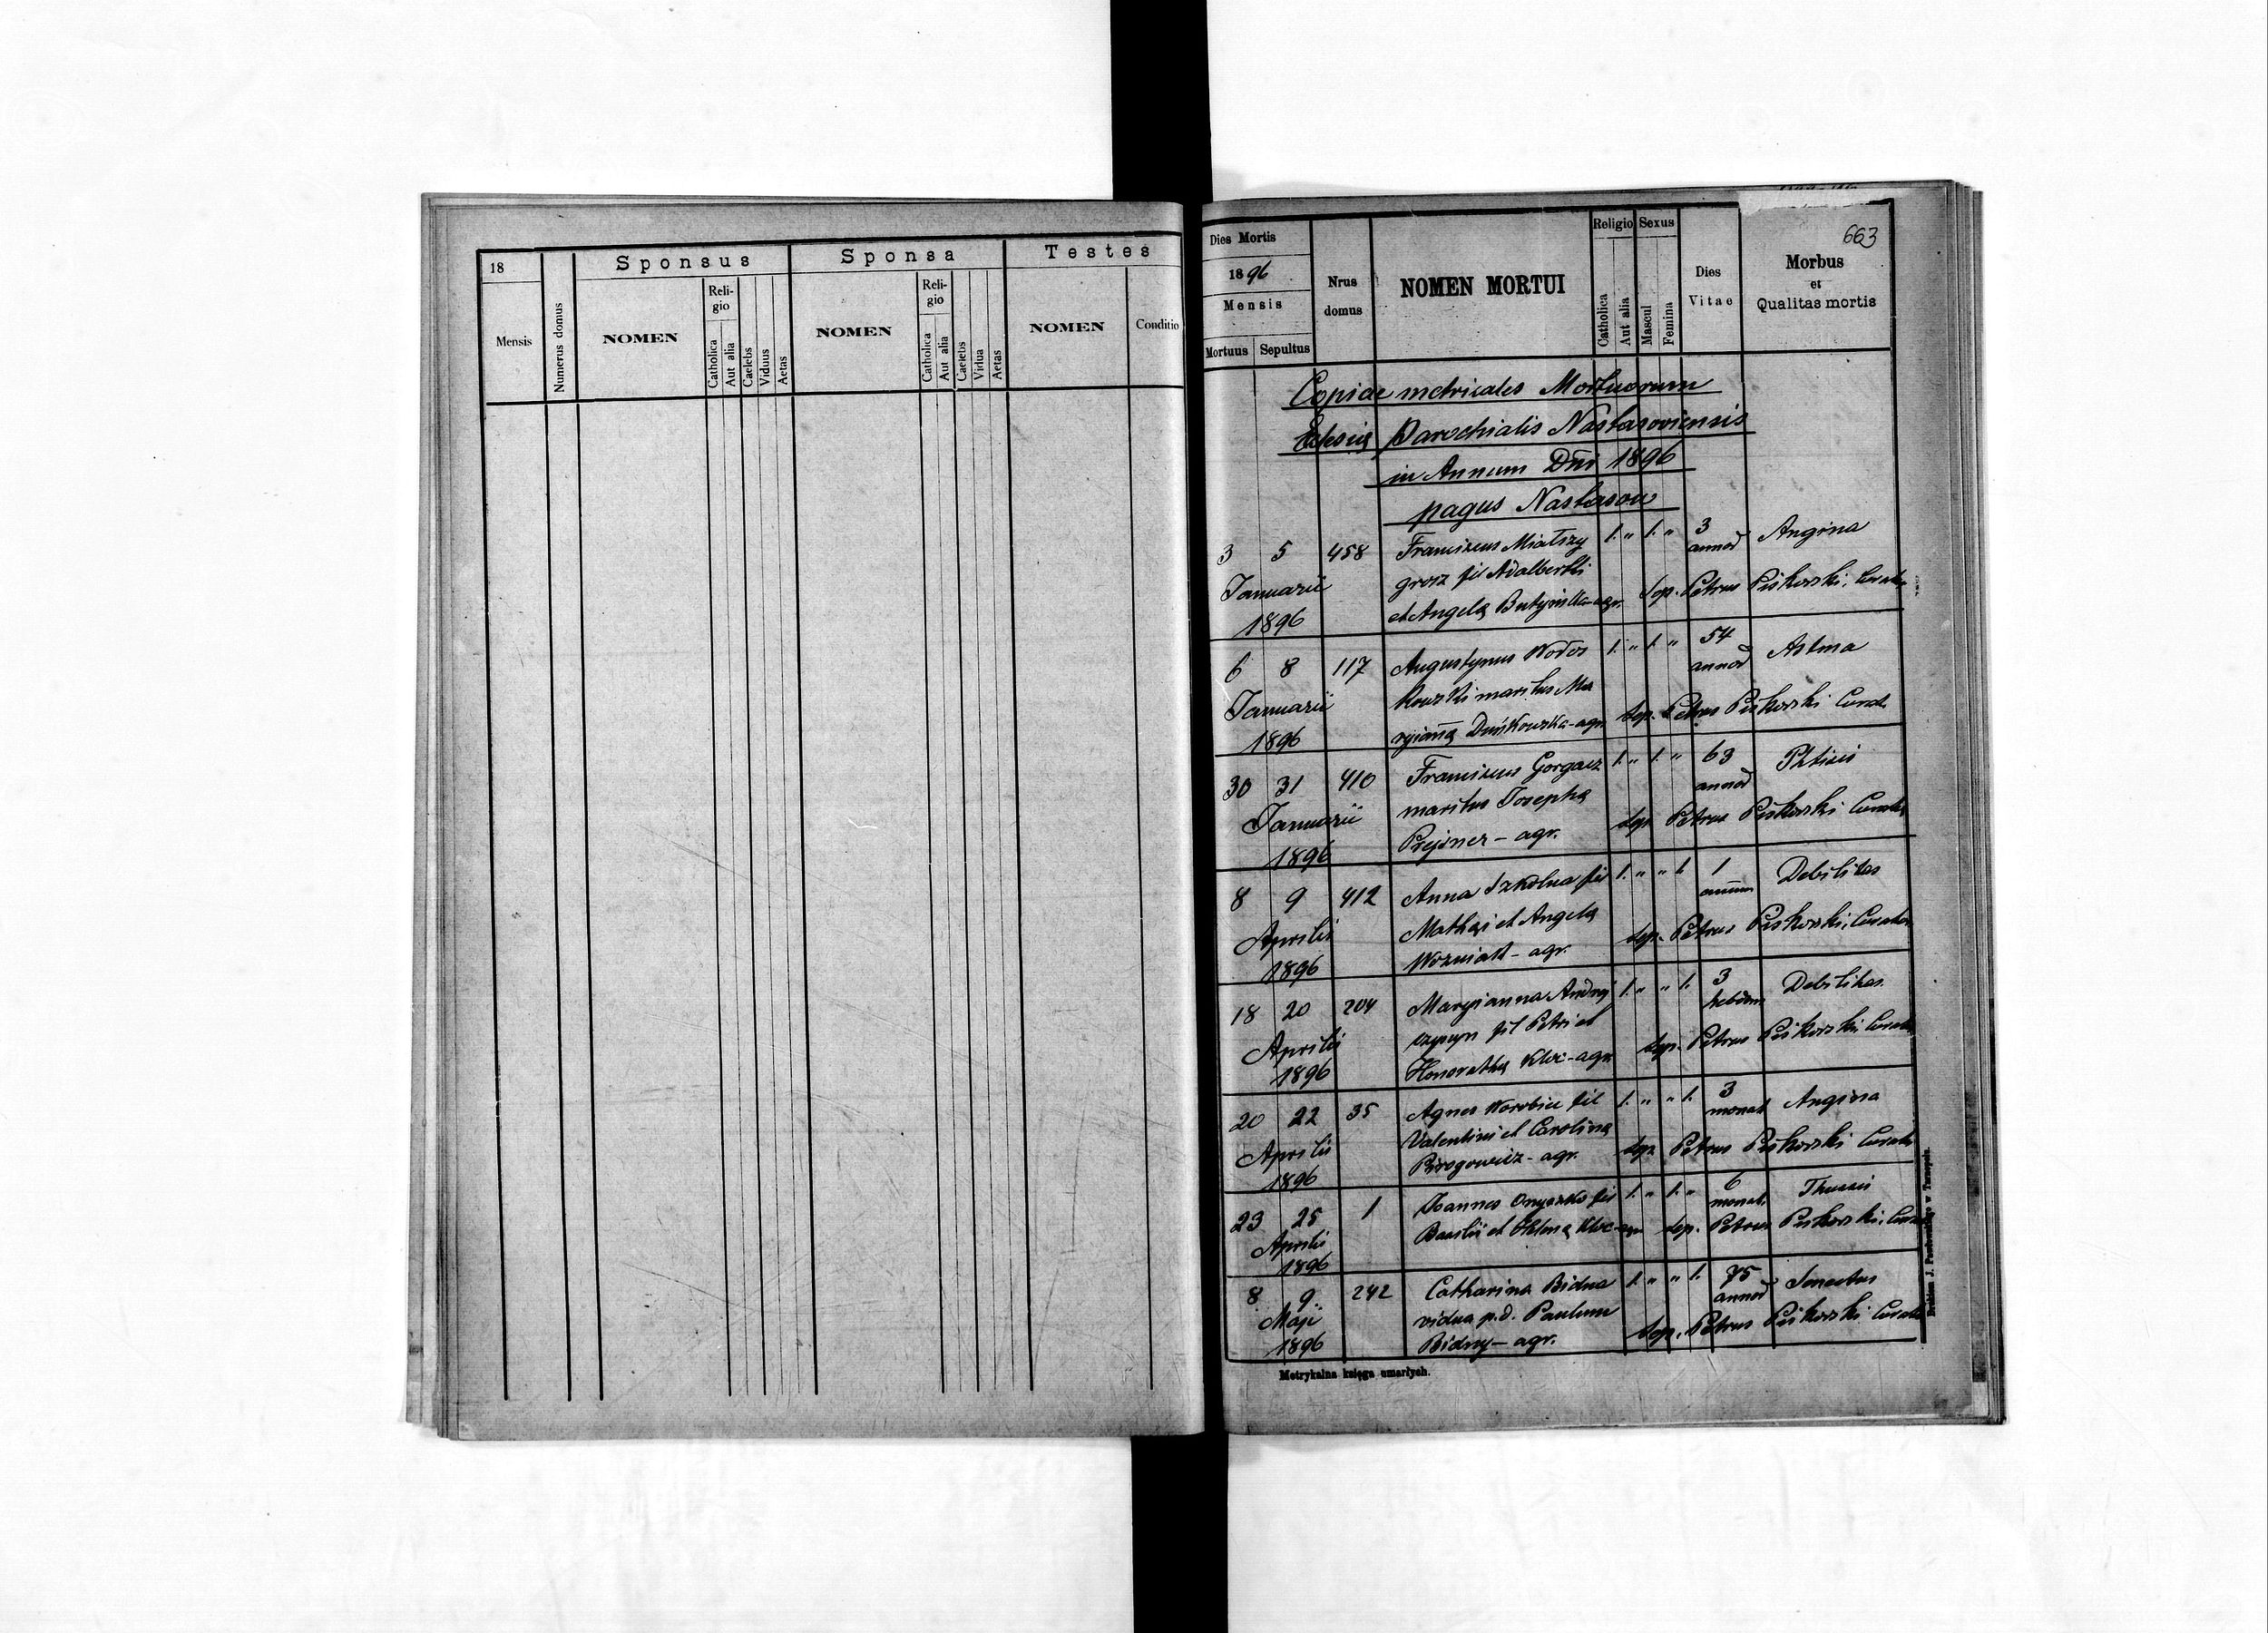 18
Mensis
Numerus domus
Sponsus
NOMEN
Reli-
gio
Catholica
Aut alia
Caelebs
Viduus
Aetas
Sponsa
NOMEN
Reli-
gio
Catholica
Aut alia
Caelebs
Vidua
Aetas
Testes
NOMEN
Conditio
663
Dies Mortis
1896
Mensis
Mortuus Sepultus
Nrus
domus
NOMEN MORTUI
Religio
Catholica
Aut alia
Sexus
Mascul
Femina
Dies
Vitae
Morbus
et
Qualitas mortis
Copiae metricales Mortuorum
Parochialis Nastasoviensis
in Annum Dni 1896
pagus Nastasow
3 5 458 Franciscus 1. " 1. " 3 Angina
annor
Januarii grosz fil Adalberti
1896 et Angelę agr. sep. Petrus Piskorski, Curatus
6 8 117 Augustynus Wodos 1. " 1. " 54 Astma
annor
Januarii kowski maritus Ma
1896 ryiannę Duńkowska - agr. sep. Petrus Piskorski Curat.
30 31 410 Franciscus Gorgacz 1. " 1. " 63 Phtisis
annor
Januarii maritus Josephę
1896 agr. sep. Petrus Piskorski Curatus
8 9 412 Anna Szkolna fil 1. " " 1. 1 Debilitas
annum
Aprilis Mathęi et Angelę
1896 Wozniak - agr. sep. Petrus Piskorski, Curatus
18 20 204 Maryianna Andrej 1. " " 1. 3 Debilitas
hebdom
Aprilis czyszyn fil Petri et
1896 Honorathę Kloc - agr. sep. Petrus Piskorski, Curatus
20 22 35 Agnes Worobiec fil 1. " " 1. 3 Angina
monat
Aprilis Valentini et Carolinę
1896 Pirogowicz - agr. sep. Petrus Piskorski Curatus
23 25 1 Joannes Onyszko fil 1. " 1. " 6 Thussis
monat.
Aprilis Basilii et Kloc - agr. sep. Petrus Piskorski, Curatus
1896
8 9 242 Catharina Bidna 1. " " 1. 75 Senectus
annor
Maji vidua p.d. Paulum
1896 Bidny - agr. sep. Petrus Piskorski Curatus
Metrykalna księga umarłych.
Drukiem J. Pawłowskiego w Tarnopolu.